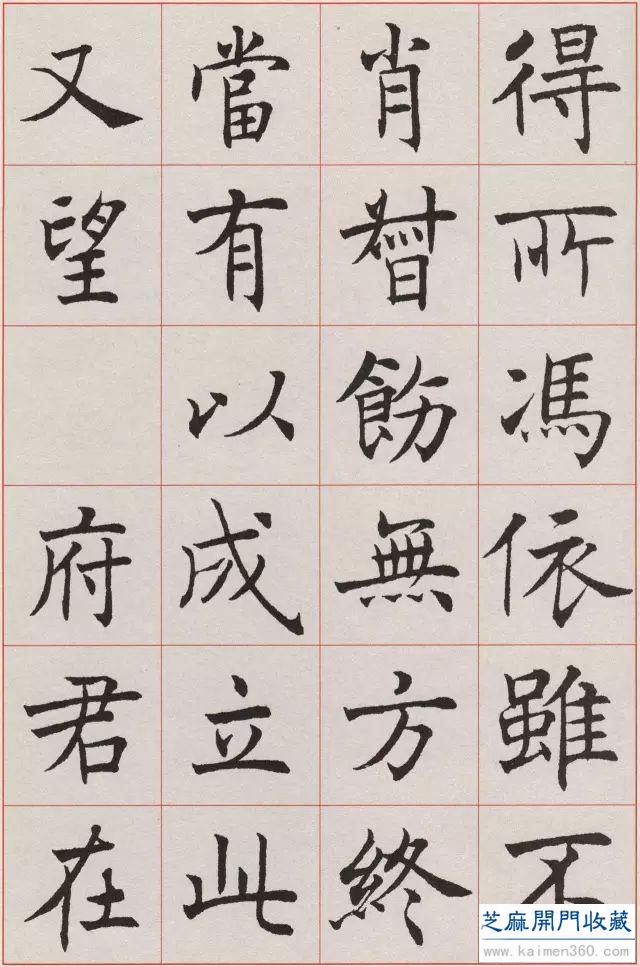 得所馮依雖不
肖督飭無方終
當有以成立此
又望 府君在
芝麻開門收藏
www.kaimen360.com